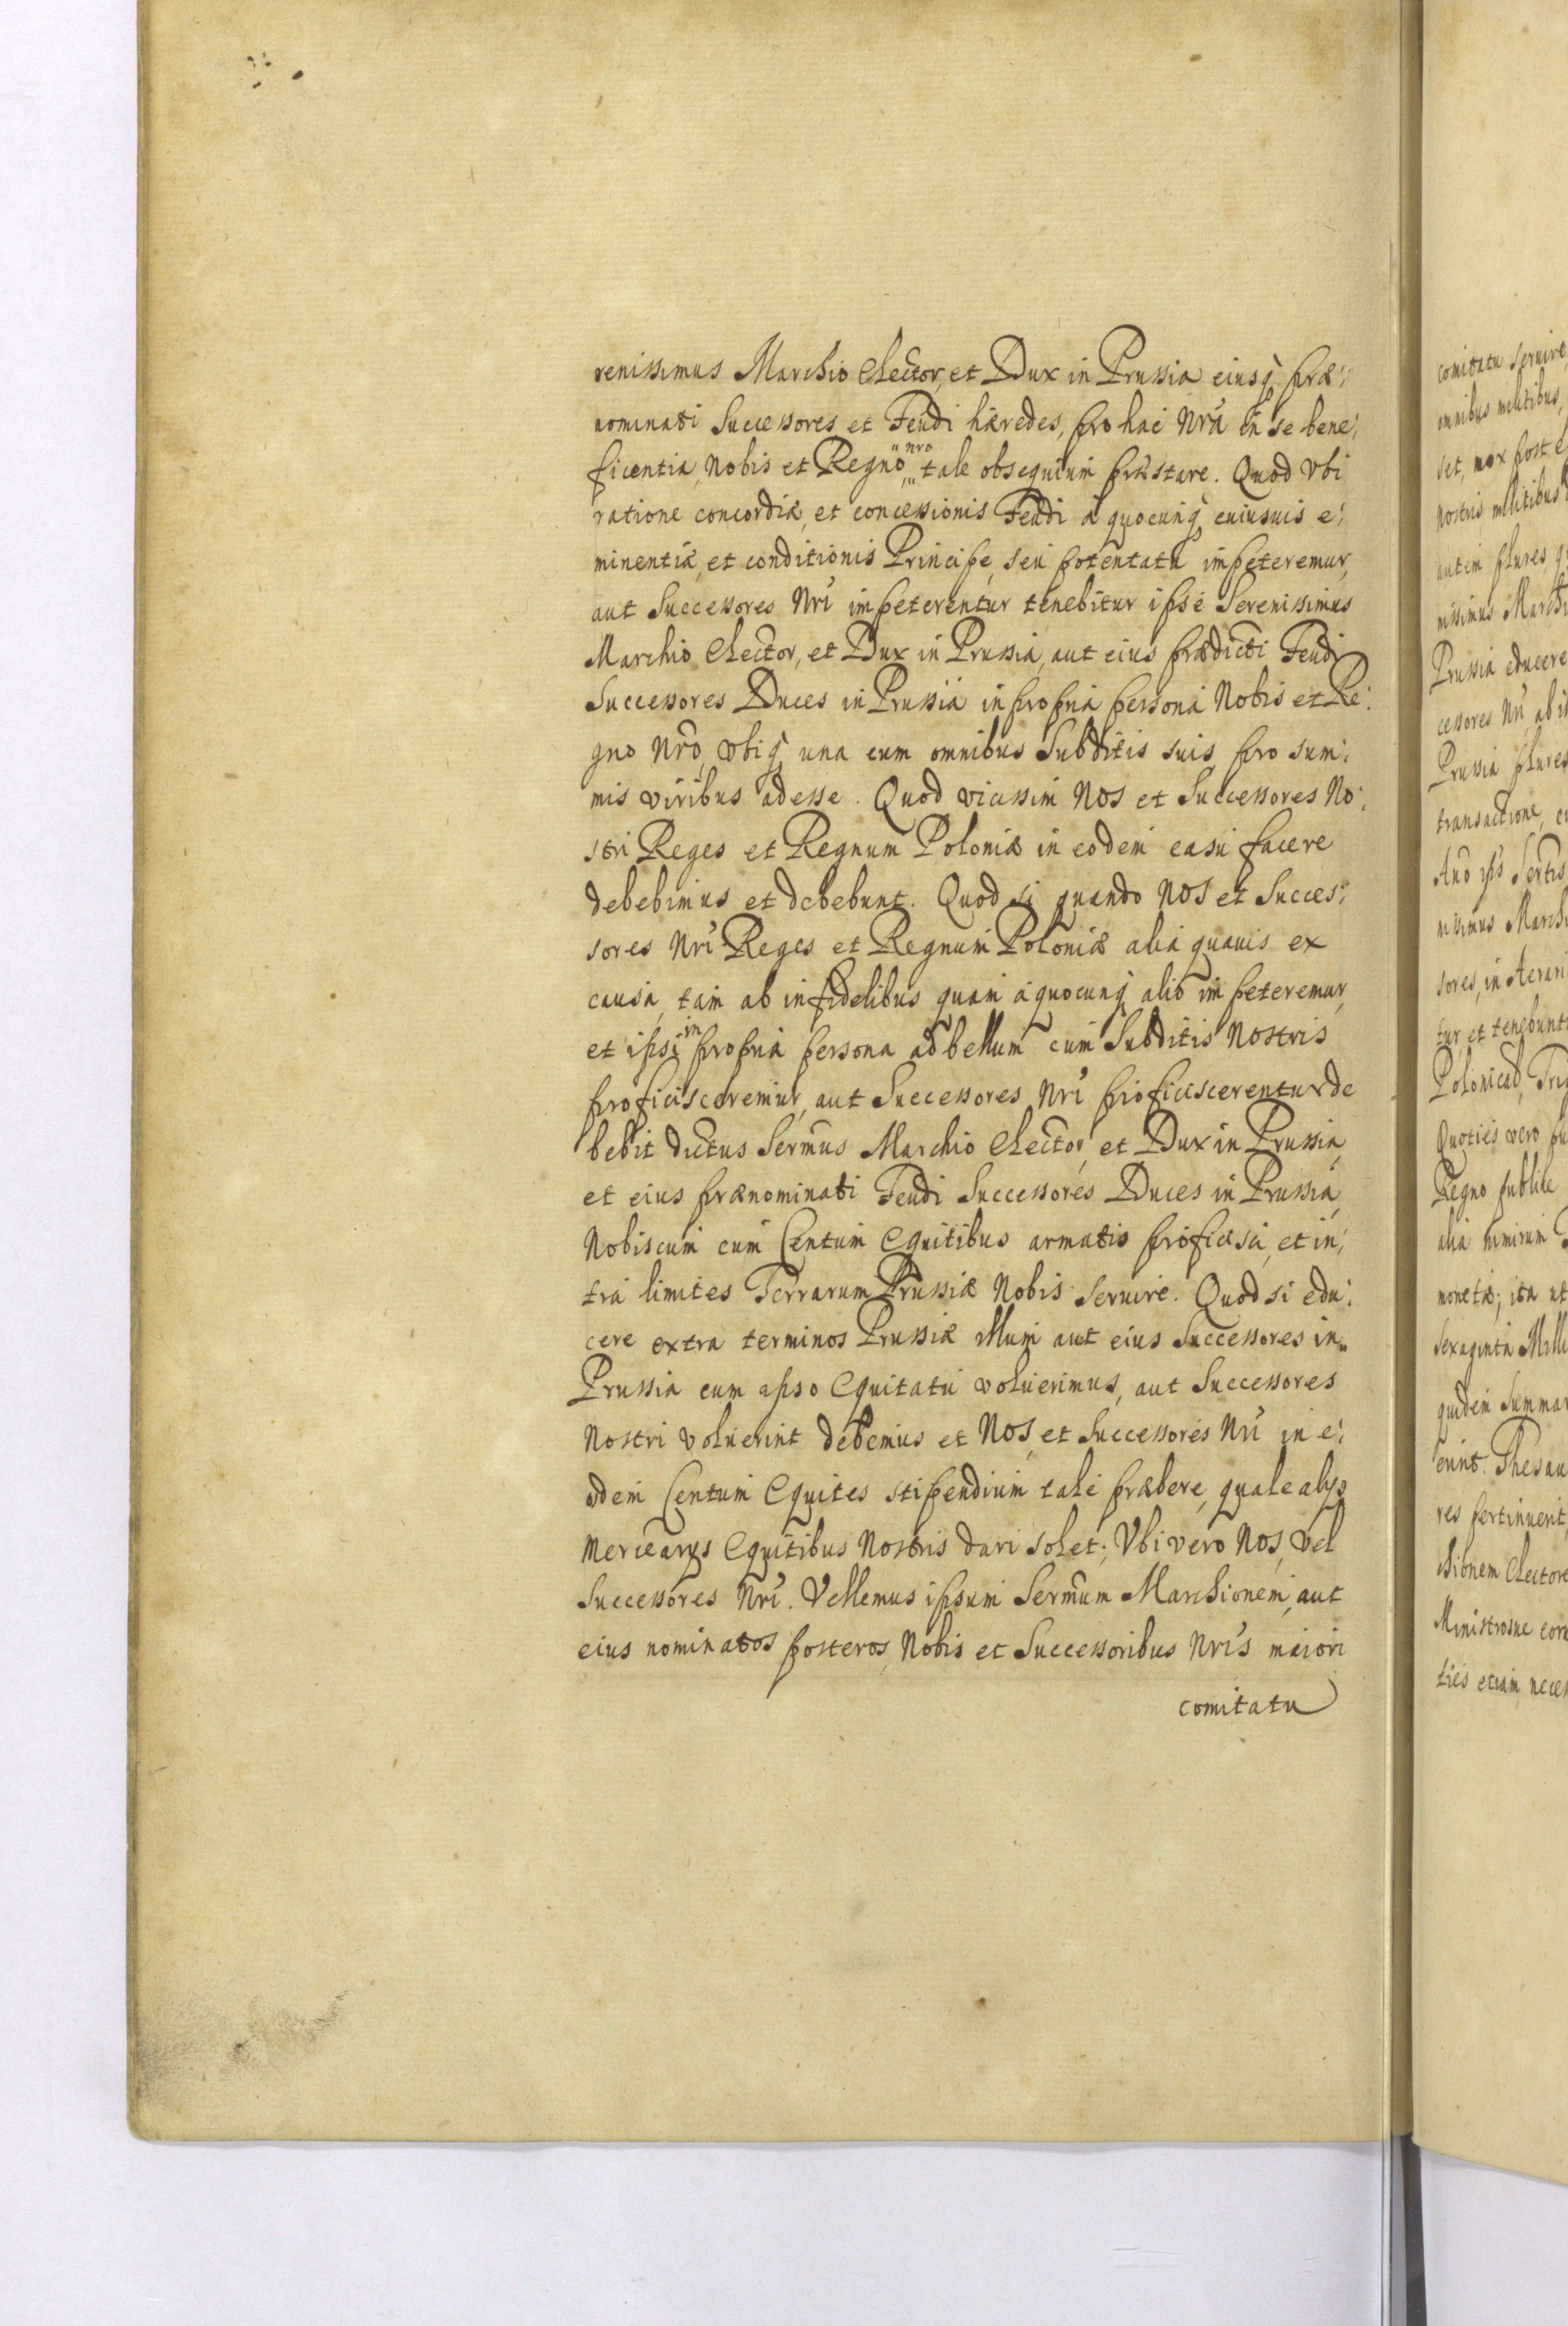 renissimus Marchio Elector, et Dux in Prussia eiusq̃ præ:
nominati Successores et Feudi hæredes, pro hac Nrã in se bene:
ficentia, Nobis et Regno nro tale obsequium præstare. Quod Vbi
ratione concordiæ, et concessionis Feudi à quocunq̃ cuiusuis e:
minentiæ, et conditionis Principe, seu potentatu impeteremur,
aut Successores Nri impeterentur tenebitur ipse Serenissimus
Marchio Elector, et Dux in Prussia, aut eius prædicti Feudi
Successores Duces in Prussia in propria persona Nobis et Re:
gno Nrõ, vbiq̃ una cum omnibus Subditis suis, pro sum:
mis viribus adesse. Quod vicissim Nos et Successores No:
stri Reges et Regnum Poloniæ in eodem casu facere
debebimus et debebunt. Quod si quando Nos et Succes:
sores Nri Reges et Regnum Poloniæ alia quauis ex
causa, tam ab infidelibus quam à quocunq̃ alio impeteremur,
et ipsi in propria persona ad bellum cum Subditis Nostris
proficisceremur, aut Successores Nri proficiscerentur de
bebit dictus Sermus Marchio Elector, et Dux in Prussia,
et eius prænominati Feudi Successores Duces in Prussia,
Nobiscum cum Centum Equitibus armatis proficisci, et in:
tra limites Terrarum Prussiæ Nobis seruire. Quod si edu:
cere extra terminos Prussiæ illum aut eius Successores in
Prussia cum ipso Equitatu voluerimus, aut Successores
Nostri voluerint debemus et Nos, et Successores Nri in e:
odem Centum Equites stipendium tale præbere, quale alijs
Mercearijs Equitibus Nostris dari solet; Vbi vero Nos, vel
Successores Nri. Vellemus ipsum Sermum Marchionem, aut
eius nominatos posteros, Nobis et Successoribus Nris maiori
comitatu
comitatu seruire,
omnibus militibus,
set, mox post
Nostris militibus
autem plures
nissimus Marchi
Prussia educere
cessores Nri ab
Prussia plures
transactione,
nissimus Marchi
sores, in Aerari
tur, et tenebunt
Quoties vero
Regno publice
alia nimirum
monetæ; ita ut
Sexaginta Mille
quidem Summa
erint. Thesau
res pertinuerit,
chionem Electore
Ministrosue
ties etiam neces